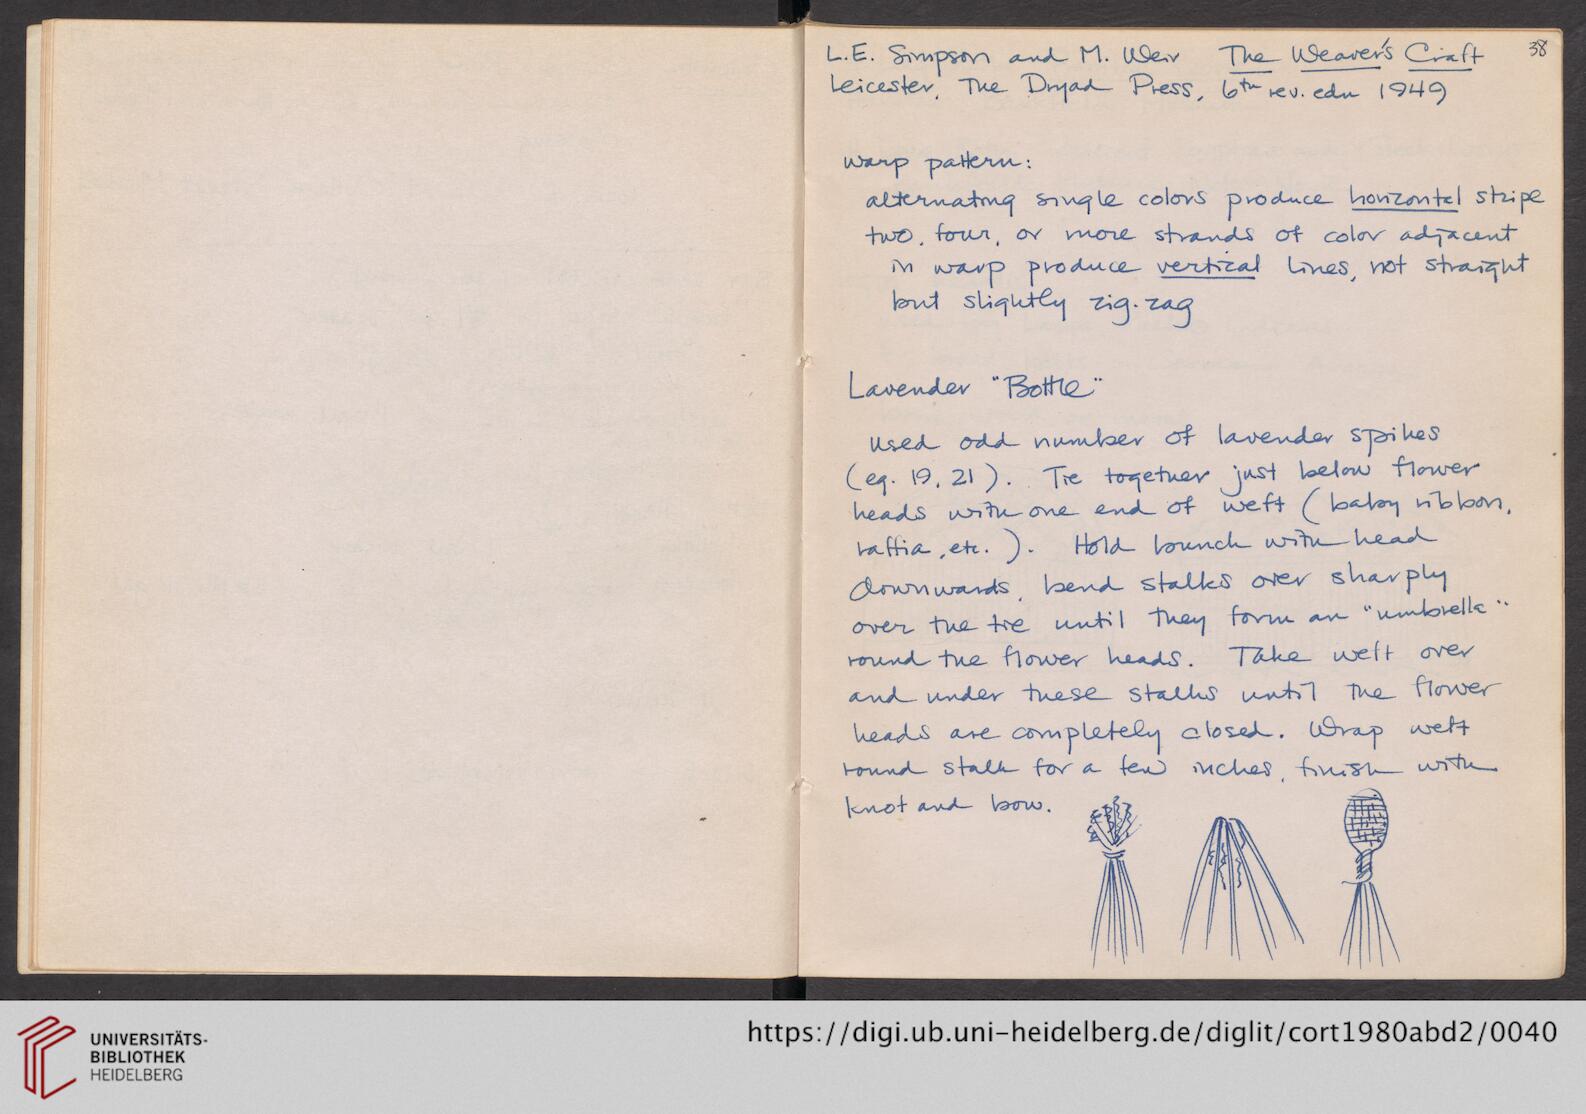 38
L.E. Simpson and M. Weir The Weaver's Craft
Leicester, The Dryad Press, 6th rev. edn 1949
warp pattern:
alternating single colors produce horizontal stripe
two, four, or more strands of color adjacent
in warp produce vertical lines, not straight
but slightly zig-zag
Lavender "Bottle"
used odd number of lavender spikes
(eg. 19, 21). Tie together just below flower
heads with one end of weft (baby ribbon,
raffia, etc.). Hold bunch with head
downwards, bend stalks over sharply
over the tie until they form an "umbrella"
round the flower heads. Take weft over
and under these stalks until the flower
heads are completely closed. Wrap weft
round stalk for a few inches, finish with
knot and bow.
UNIVERSITÄTS-
BIBLIOTHEK
HEIDELBERG
https://digi.ub.uni-heidelberg.de/diglit/cort1980abd2/0040